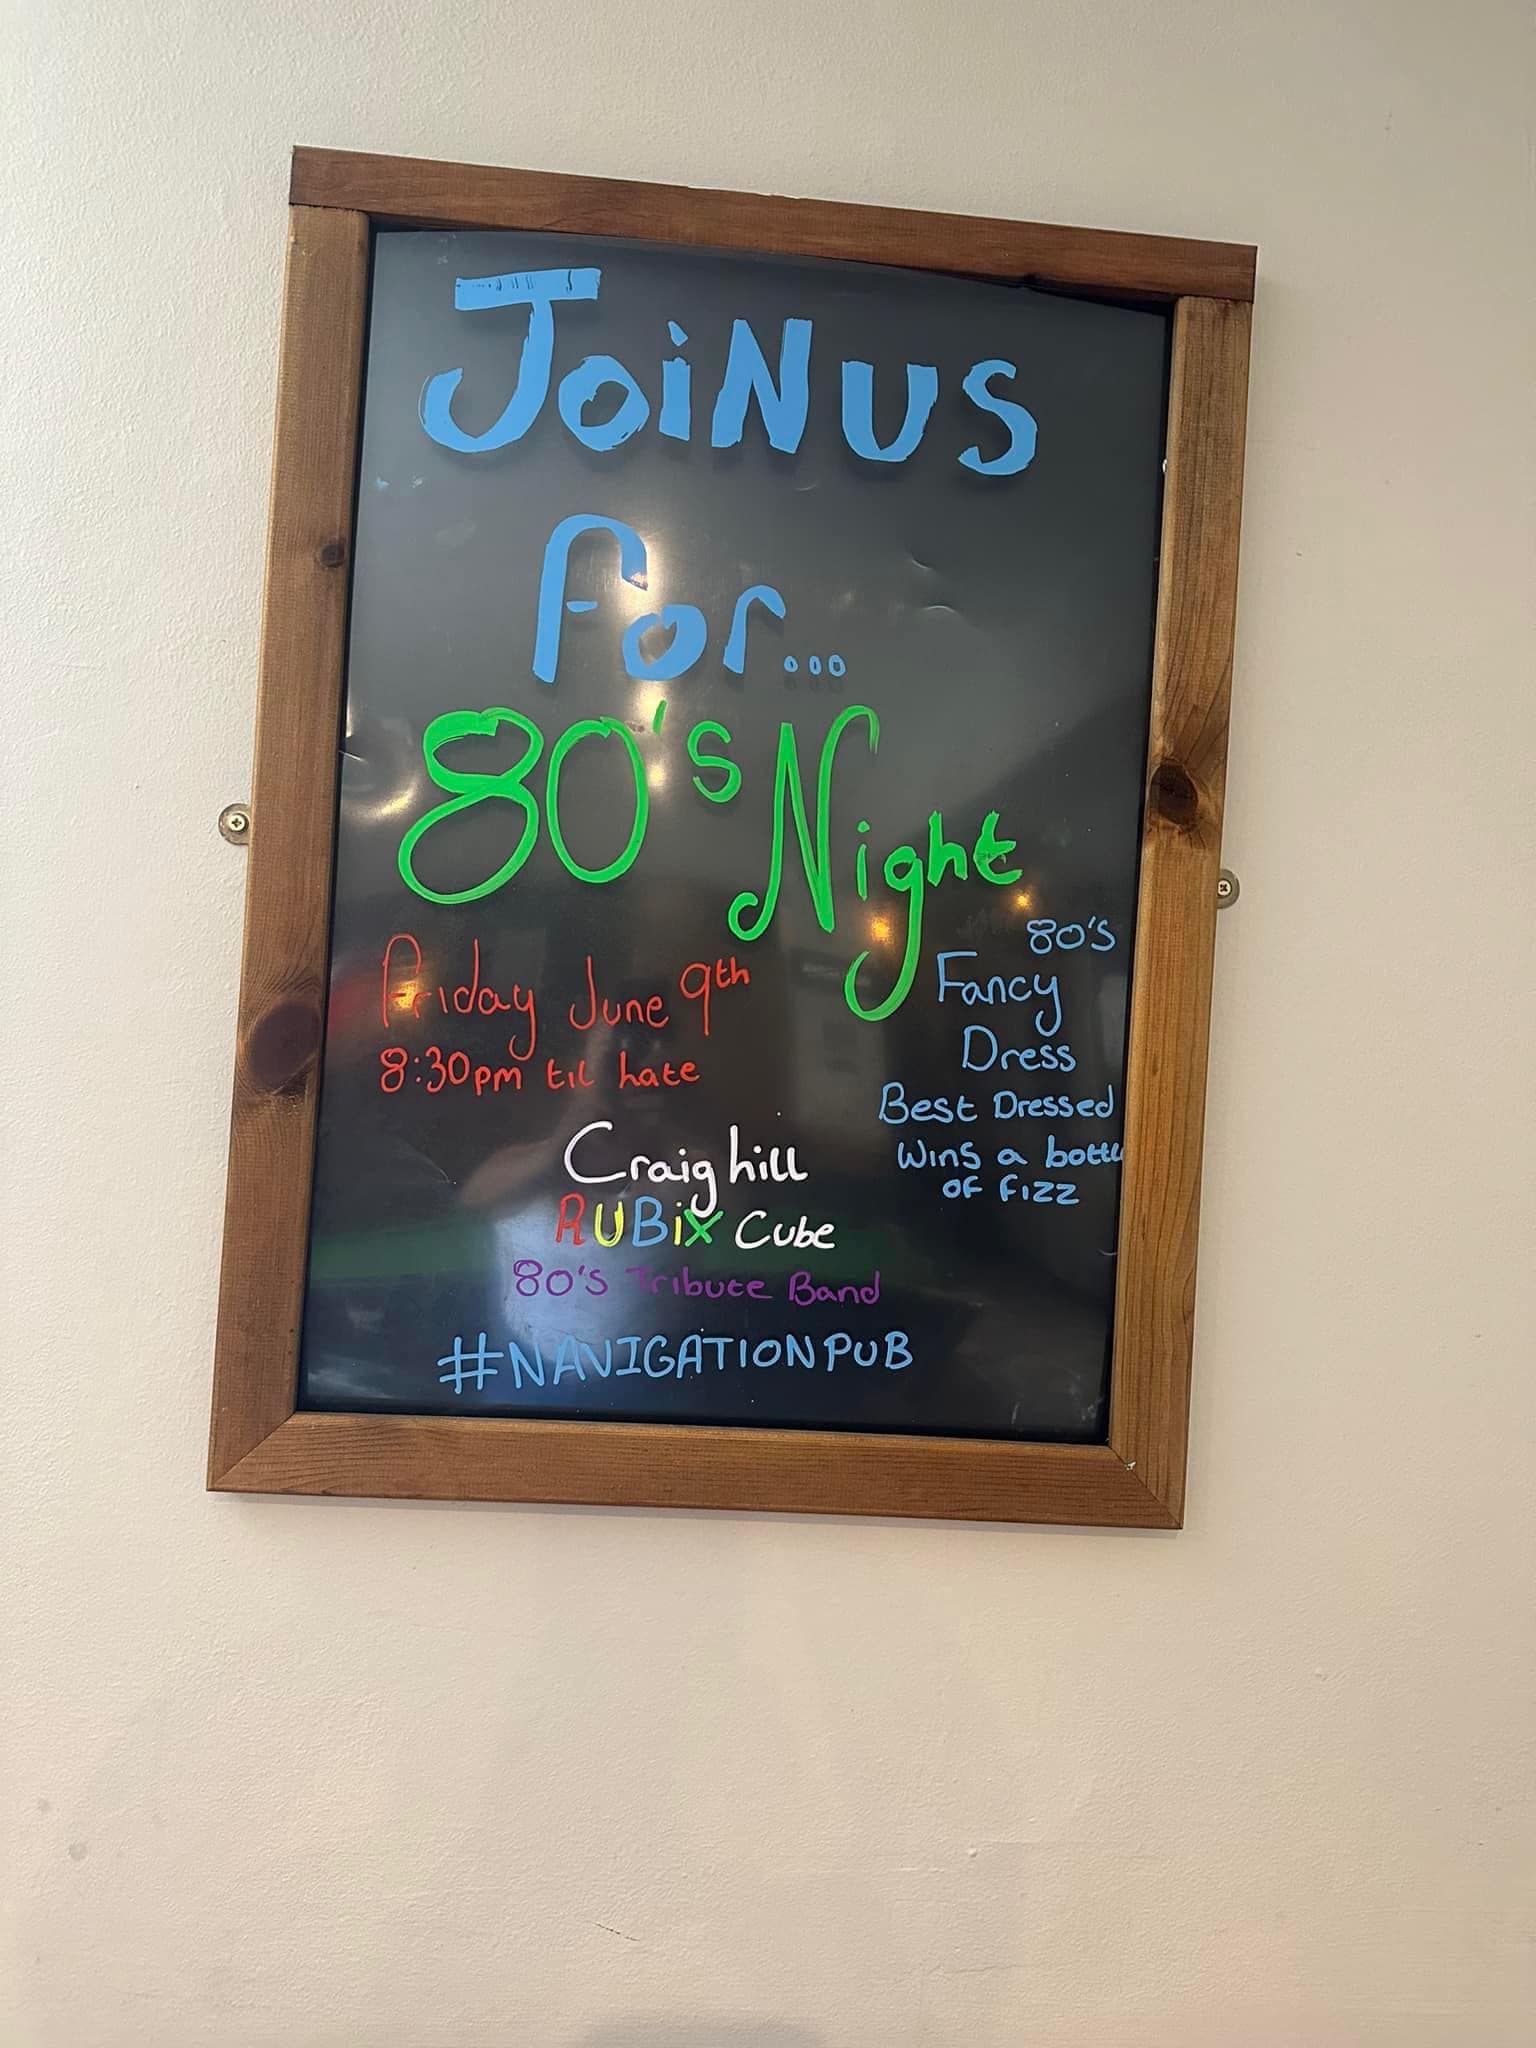 JoiNUS
For...
80's Night
Friday June 9th
8:30pm til hate
80's
Fancy
Dress
Best Dressed
Wins a bottle
of fizz
Craig hill
RUBix Cube
80's Tribute Band
#NAVIGATIONPUB